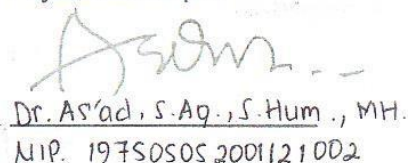 Dr. As'ad, S.Ag., S.Hum., MH.
NIP. 197505052001121002